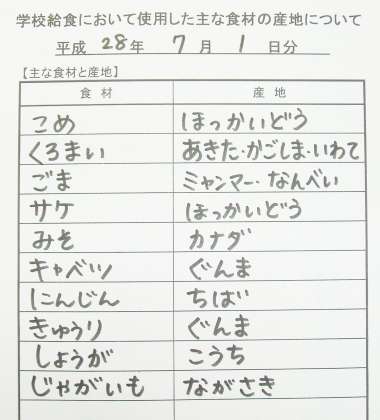 学校給食において使用した主な食材の産地について
平成 28 年 7 月 1 日分
【主な食材と産地】
食材 産地
こめ ほっかいどう
くろまい あきた・かごしま・いわて
ごま ミャンマー・なんべい
サケ ほっかいどう
みそ カナダ
キャベツ ぐんま
にんじん ちば
きゅうり ぐんま
しょうが こうち
じゃがいも ながさき